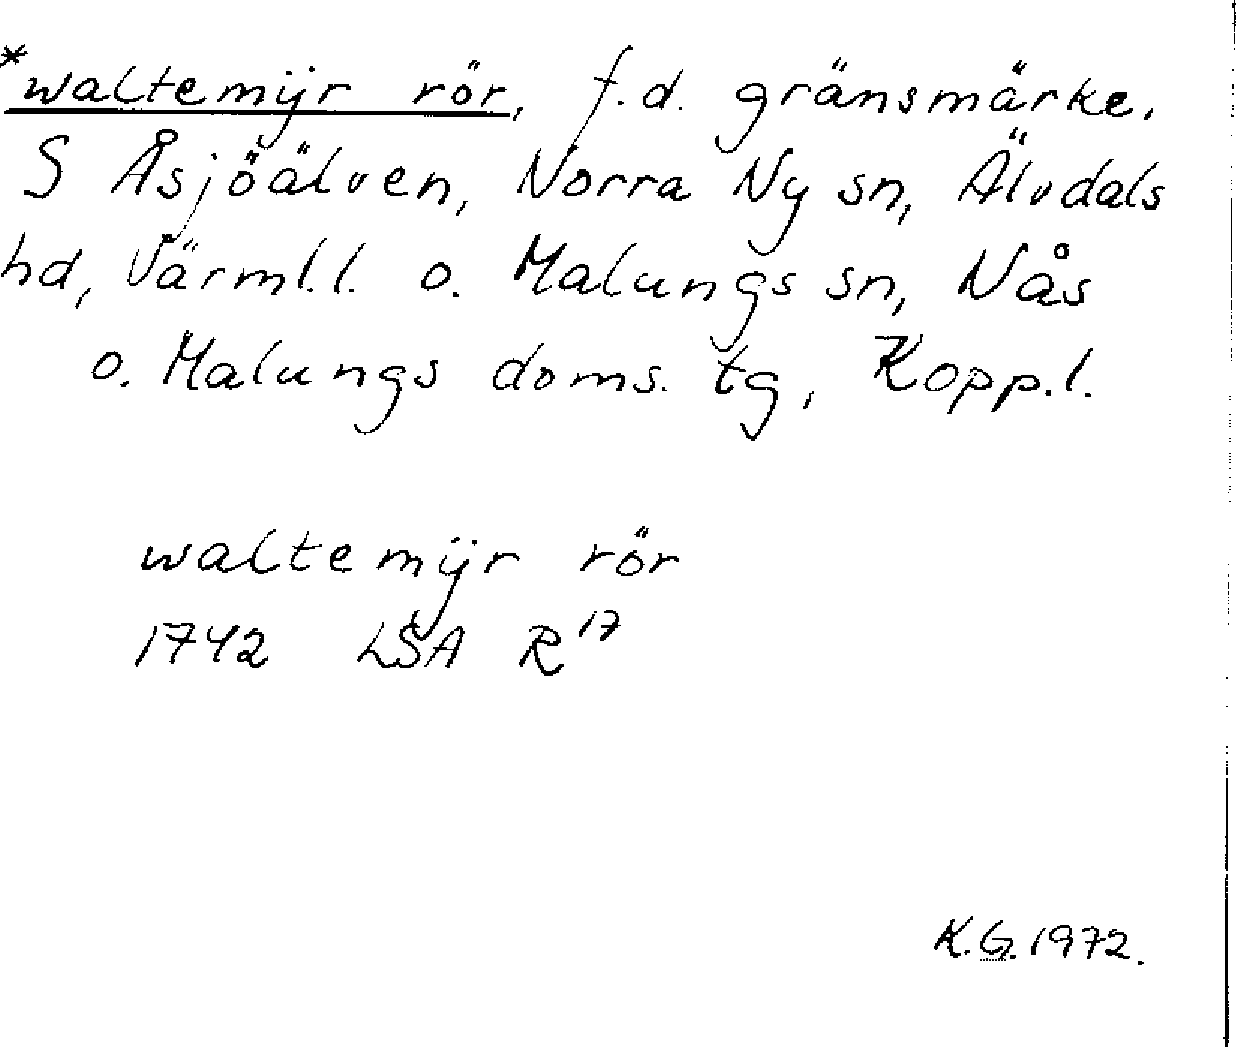 *waltemÿr rör, f.d. gränsmärke.
S Åsjöälven, Norra Ny sn, Älvdals
hd, Värml.l. o. Malungs sn, Nås
o. Malungs doms. tg, Kopp.l.
waltemÿr rör
1742 LSA R¹⁷
K.G. 1972.